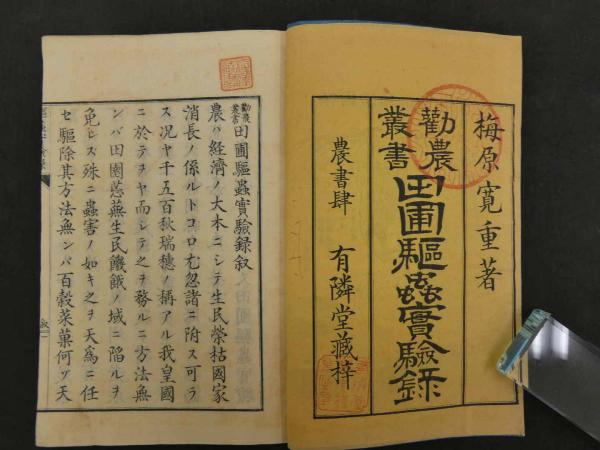 梅原寛重著
勸農叢書
田圃驅蟲實驗録
農書肆 有隣堂藏梓
勸農叢書 田圃驅蟲實驗録叙
農ハ經濟ノ大本ニシテ生民榮枯國家
消長ノ係ルトコロ尤忽諸ニ附ス可ラ
ス况ヤ千五百秋瑞穗ノ稱アル我皇國
ニ於テヲヤ而シテ之ヲ務ルニ方法無
ンバ田園荒蕪生民饑餓ノ域ニ陷ルヲ
免レズ殊ニ蟲害ノ如キ之ヲ天爲ニ任
セ驅除其方法無ンバ百穀菜菓何ヅ天
叙